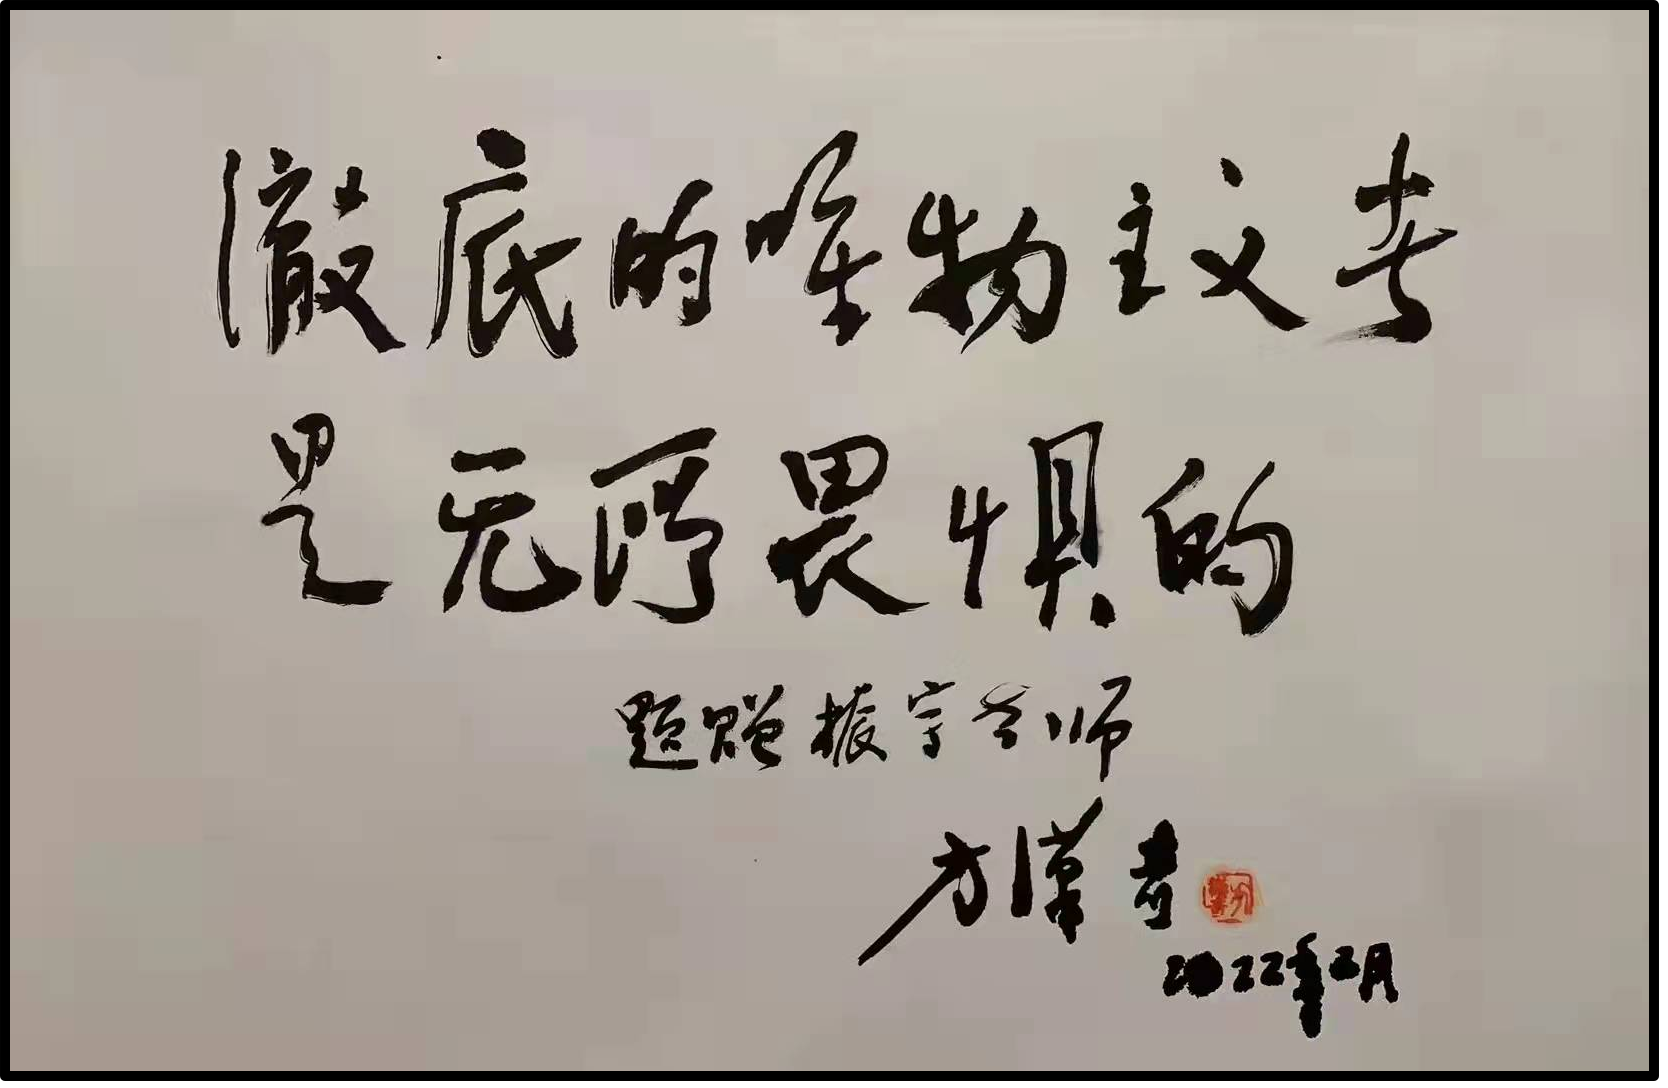 澈底的唯物主义者
是无所畏惧的
题赠振宇老师
方漢奇
2022年2月